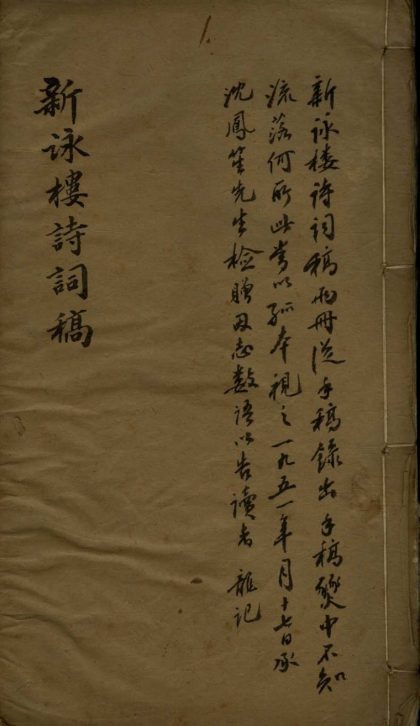 新詠樓詩詞稿兩冊從手稿錄出手稿變中不知
流落何所此當以孤本視之一九五一年月十七日承
沈鳳笙先生檢贈因志數語以告讀者 龍記
新詠樓詩詞稿